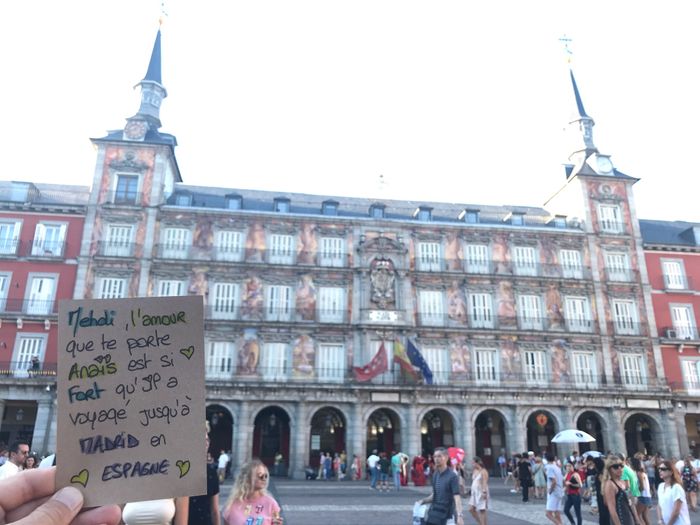 Mehdi, l'amour
que te porte
Anaïs est si
Fort qu'il a
voyagé jusqu'à
MADRID en
ESPAGNE